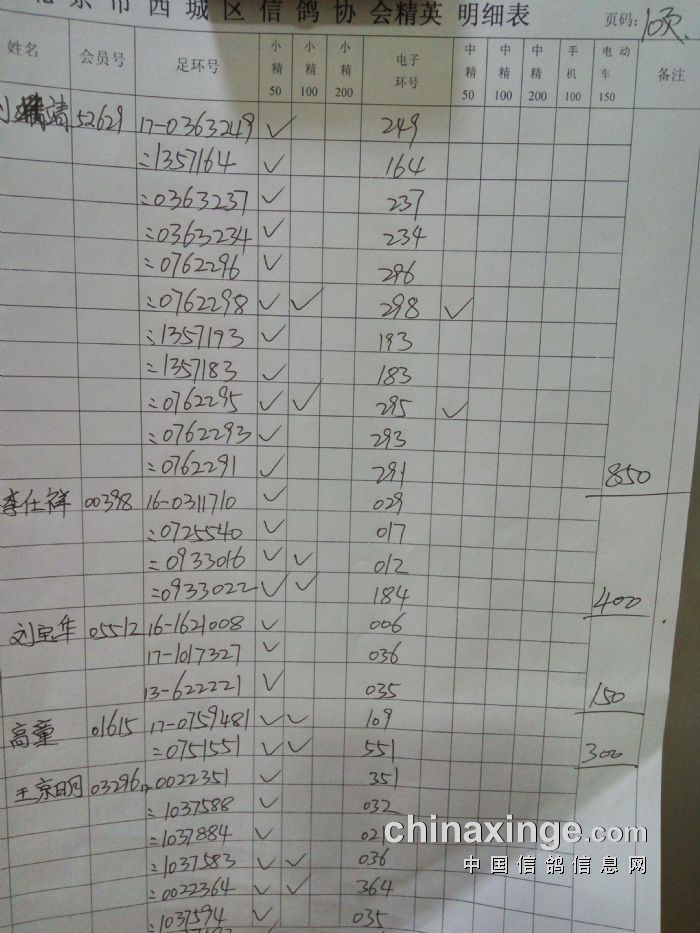 北京市西城区信鸽协会精英 明细表
页码: 10页
姓名 会员号 足环号 小精50 小精100 小精200 电子环号 中精50 中精100 中精200 手机100 电动车150 备注
52629 17-0363249 ✓ 249
:: 1357164 ✓ 164
:: 0363237 ✓ 237
:: 0363234 ✓ 234
:: 0762296 ✓ 296
:: 0762298 ✓ ✓ 298 ✓
:: 1357193 ✓ 193
:: 1357183 ✓ 183
:: 0762295 ✓ ✓ 295 ✓
:: 0762293 ✓ 293
:: 0762291 ✓ 291 850
李仕祥 00398 16-0311710 ✓ 029
:: 0725540 ✓ 017
:: 0933016 ✓ ✓ 012
:: 0933022 ✓ ✓ 184 400
刘宝华 05512 16-1621008 ✓ 006
17-1017327 ✓ 036
13-622221 ✓ 035 150
高童 01615 17-0759481 ✓ ✓ 109
:: 0751551 ✓ ✓ 551 300
王京明 03296 17-0022351 ✓ 351
:: 1037588 ✓ 032
:: 1037884 ✓
:: 1037583 ✓ ✓ 036
:: 0022364 ✓ ✓ 364
:: 1037594 ✓ 035
chinaxinge.com
中国信鸽信息网